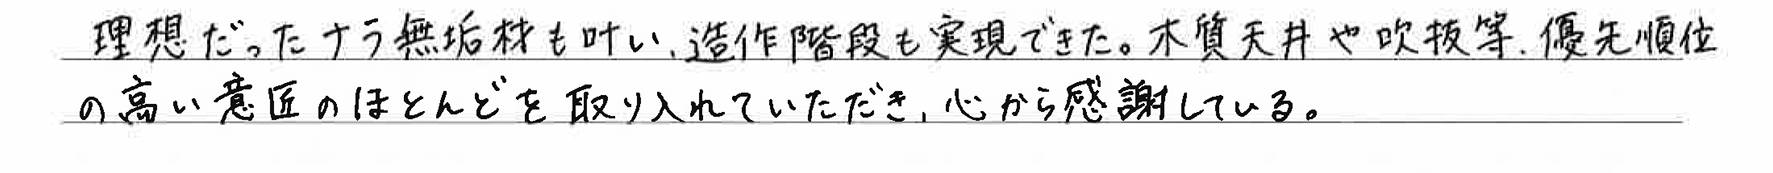 理想だったナラ無垢材も叶い、造作階段も実現できた。木質天井や吹抜等、優先順位
の高い意匠のほとんどを取り入れていただき、心から感謝している。